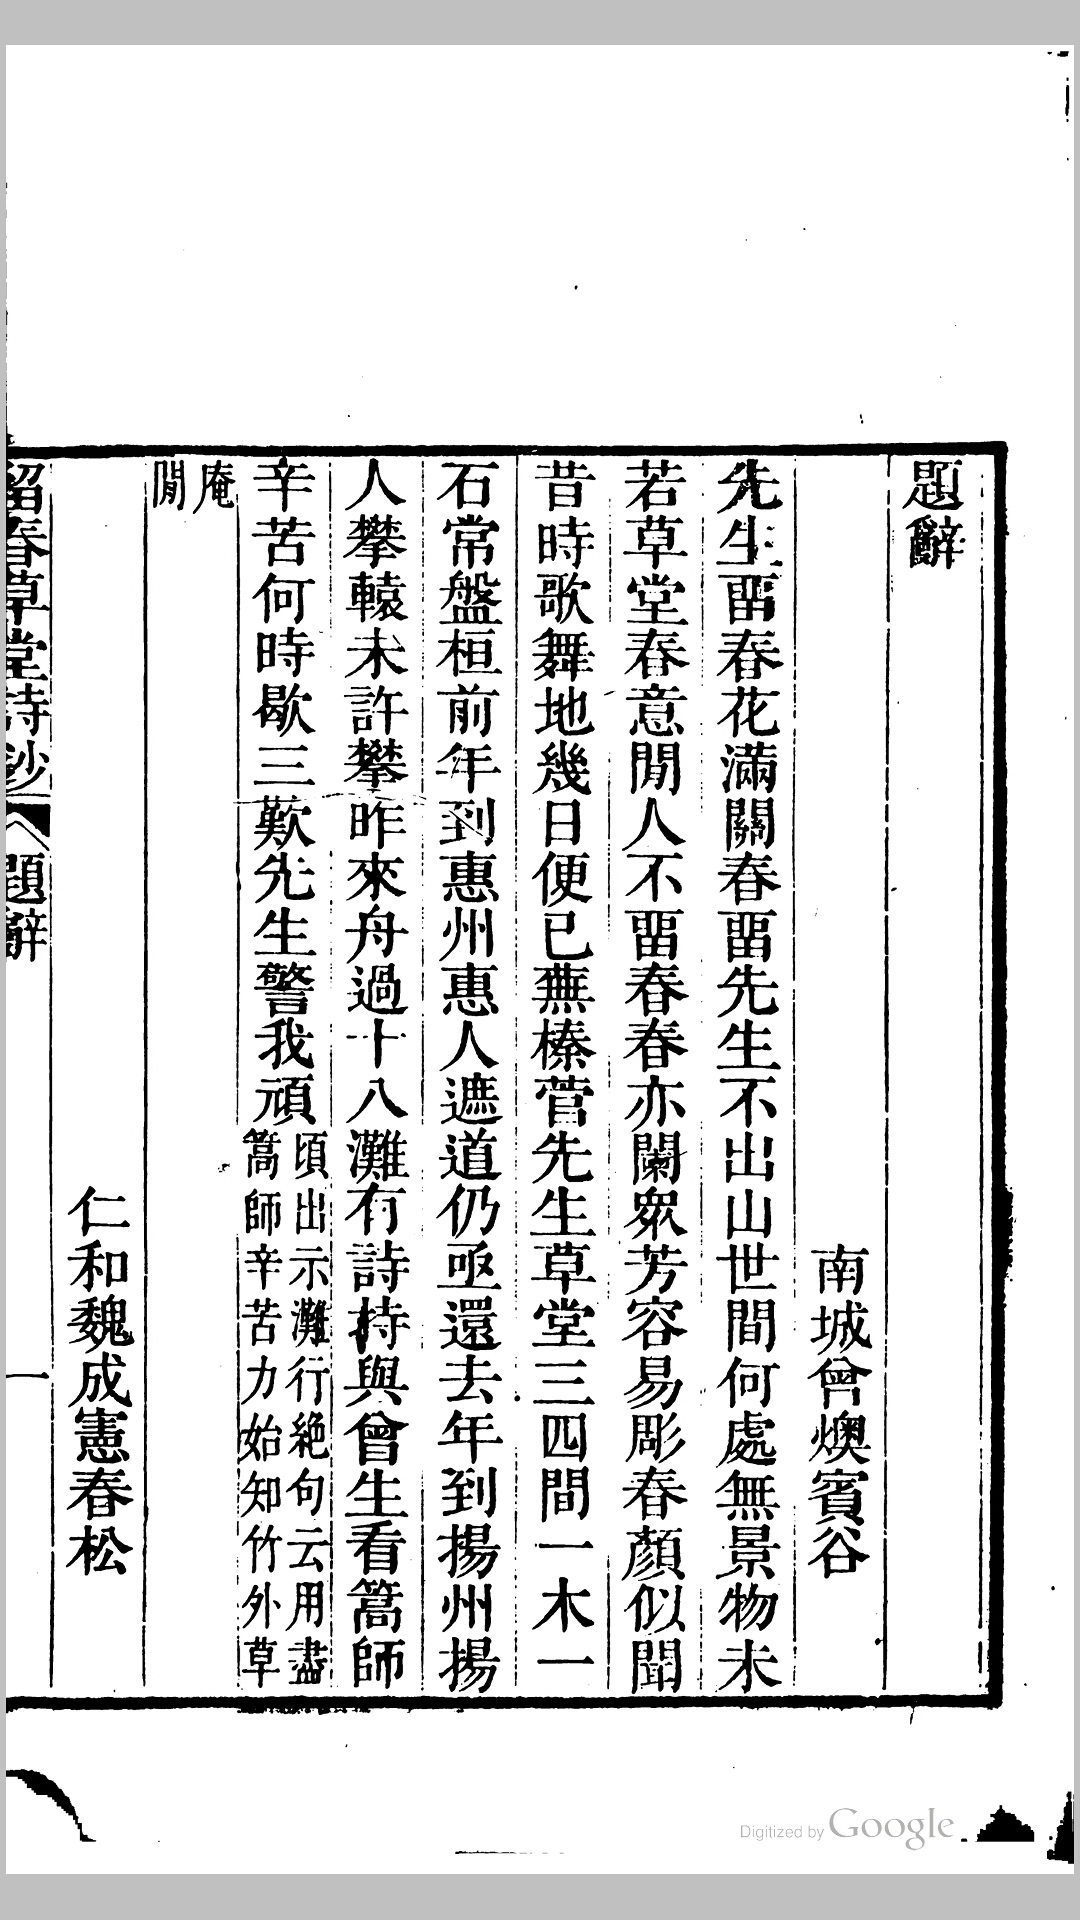 題辭
南城曾燠賓谷
先生畱春花滿關春畱先生不出山世間何處無景物未
若草堂春意閒人不畱春春亦闌衆芳容易彫春顏似聞
昔時歌舞地幾日便已蕪榛菅先生草堂三四間一木一
石常盤桓前年到惠州惠人遮道仍亟還去年到揚州揚
人攀轅未許攀昨來舟過十八灘有詩持與曾生看篙師
辛苦何時歇三歎先生警我頑
頃出示灘行絶句云用盡
篙師辛苦力始知竹外草
庵
閒
仁和魏成憲春松
留春草堂詩鈔
題辭
一
Digitized by Google